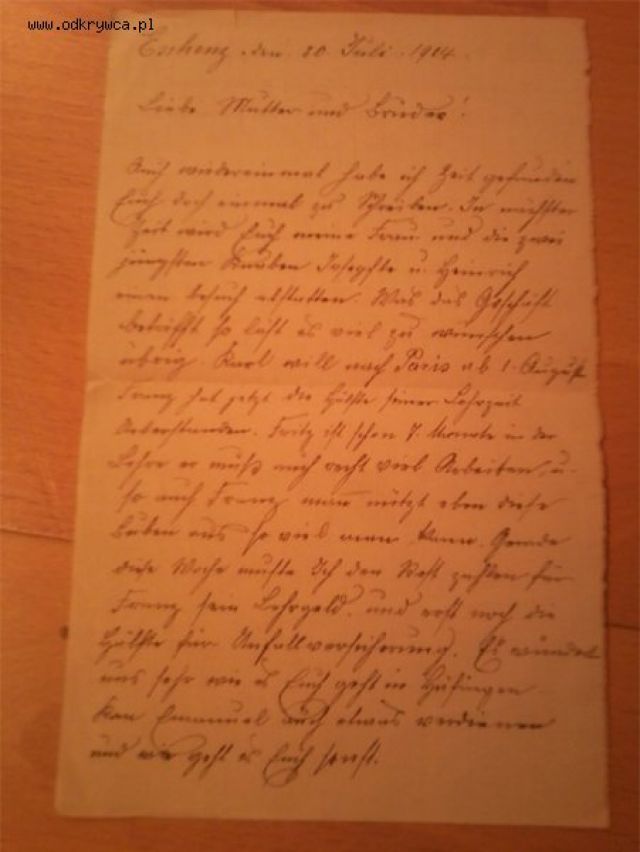 www.odkrywca.pl
Eschenz, den 20 Juli 1924.
Liebe Mutter und Brüder!
Auch wiedereinmal habe ich Zeit gefunden
Euch doch einmal zu Schreiben. In nächster
Zeit wird Euch meine Frau und die zwei
jüngsten Knaben Josephle u. Heinrich
einen besuch abstatten. Was das Geschäft
betrifft so läßt es viel zu wünschen
übrig. Karl will nach Paris ab 1. August
Franz hat jetzt die Hälfte seiner Lehrzeit
Ueberstanden. Fritz ist schon 7. Monate in der
Lehre er muß auch recht viel Arbeiten, u.
so auch Franz man nützt eben diese
Buben aus so viel man kann. Gerade
diese Woche mußte Ich den Rest zahlen für
Franz sein Lehrgeld. und erst noch die
Hälfte für Unfallversicherung. Es wundert
uns sehr wie es Euch geht in Hüfingen
Kan Emanuel auch etwas verdienen
und wie geht es Euch sonst.